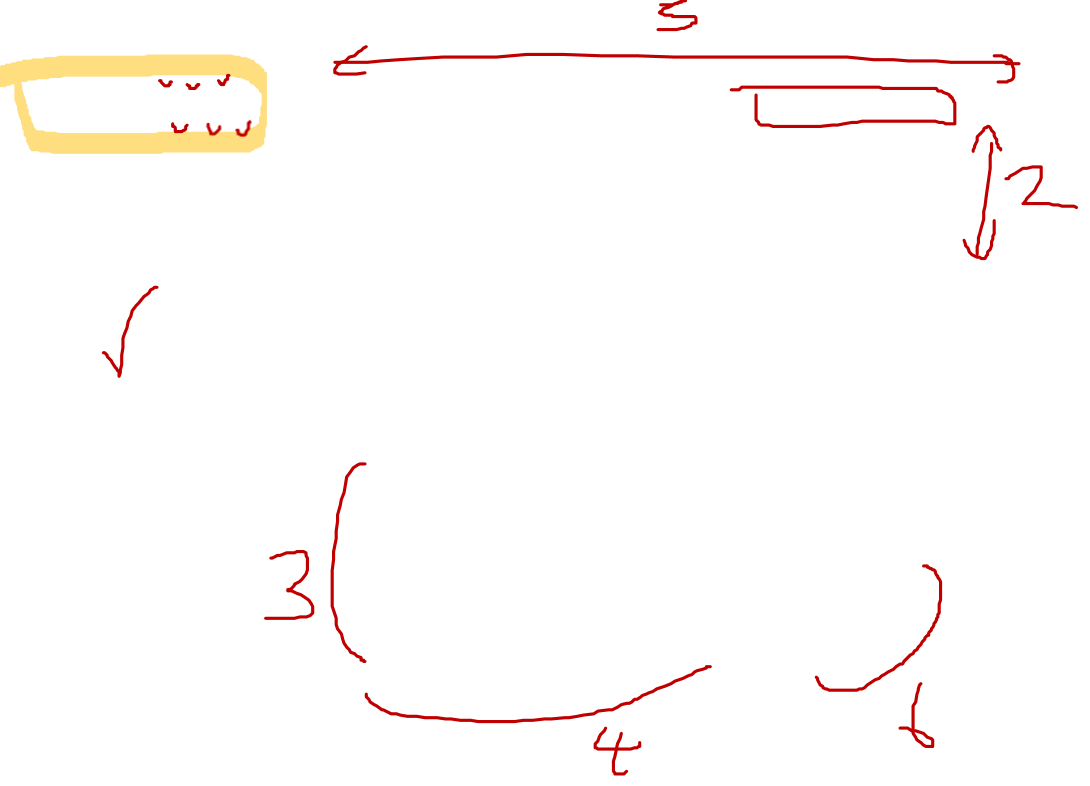 5
2
3
4
6